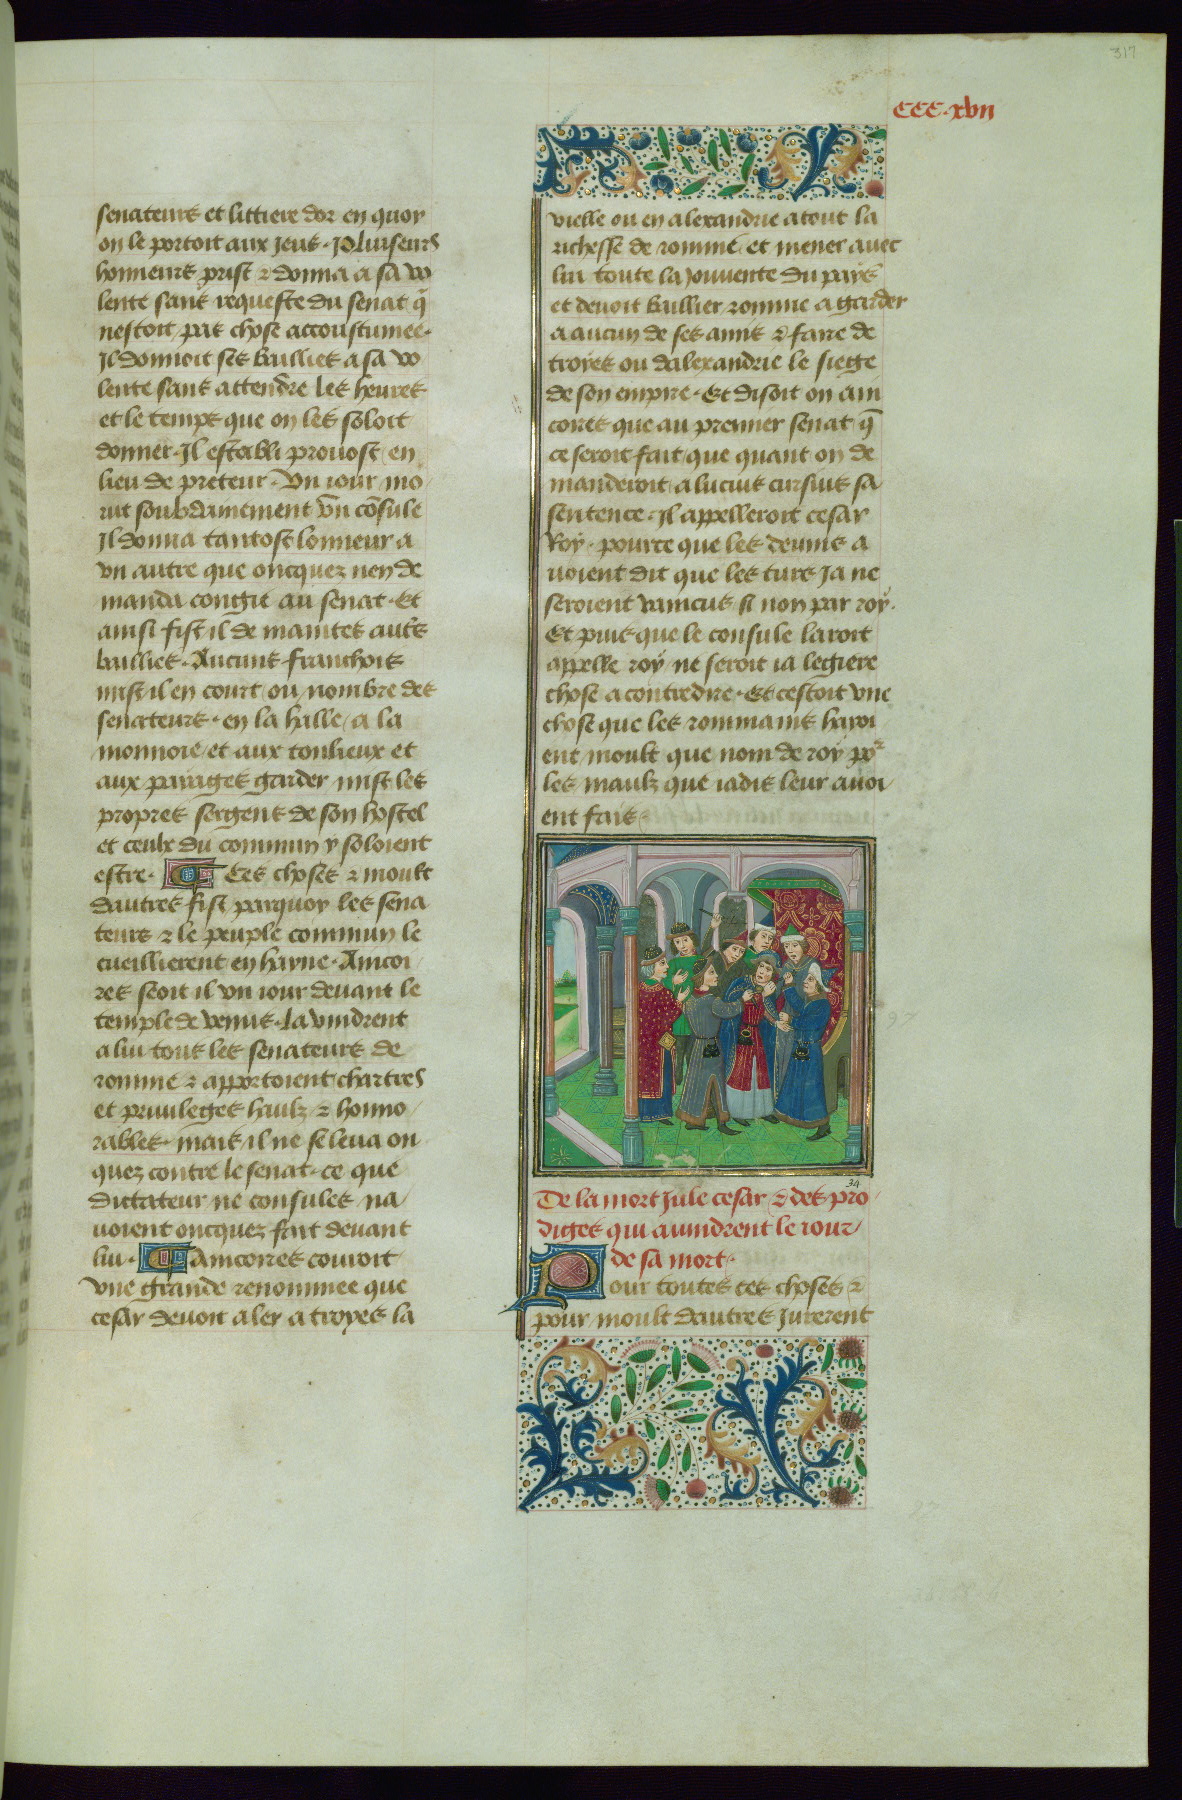 317
CCC.xvii
senateurs et littiere dor en quoy
on le portoit aux jeus. Pluiseurs
honneurs prist & donna a sa vo
lente sans requeste du senat q̄
nestoit pas chose accoustumee.
Il donnoit ses baillies a sa vo
lente sans attendre les heures
et le temps que on les soloit
donner. Il establi prouost en
lieu de preteur. Vn iour mo
rut soubdainement vn cōsule
Il donna tantost lonneur a
vn autre que oncquez nen de
manda congie au senat. Et
ainsi fist il de maintes autrs
baillies. Aucuns franchois
mist il en court ou nombre des
senateurs. en la halle a la
monnoie et aux tonlieux et
aux paiages garder mist les
propres sergens de son hostel
et ceulx du commun y soloient
estre. Ces choses & moult
dautres fist parquoy les sena
teurs & le peuple commun le
cueillierent en hayne. Aincoi
res seoit il vn iour deuant le
temple de venus. La vindrent
a lui tous les senateurs de
romme & apportoient chartres
et priuileges haulz & honno
rables. mais il ne se leua on
quez contre le senat. ce que
dictateur ne consules na
uoient oncquez fait deuant
lui. Aincores couroit
vne grande renommee que
cesar deuoit aler a troyes la
vielle ou en alexandrie a tout la
richesse de romme et mener auec
lui toute la jouuente du pays
et deuoit baillier romme a garder
a aucun de ses amis & faire de
troyes ou dalexandrie le siege
de son empire. Et disoit on ain
cores que au premier senat q̄
ce seroit fait que quant on de
manderoit a lucius cursius sa
sentence. Il appelleroit cesar
Roy. pource que les deuins a
uoient dit que les turs ja ne
seroient vaincus si non par roy.
Et puis que le consule laroit
appelle roy ne seroit ia legiere
chose a contredire. Et cestoit vne
chose que les rommains haioi
ent moult que nom de roy por
les maulz que iadis leur auoi
ent fais.
34
De la mort Jule cesar & des pro
diges qui auindrent le iour
de sa mort.
Pour toutes ces choses &
pour moult dautres jurerent
97
97